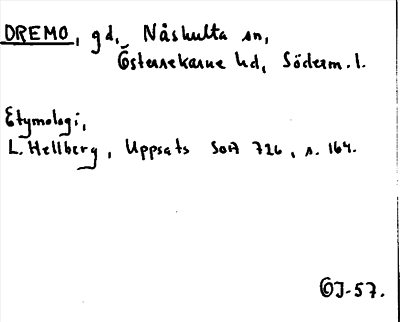 DREMO, gd, Nåshulta sn,
Österrekarne hd, Söderm. l.
Etymologi,
L. Hellberg, Uppsats SOA 726, s. 164.
OJ-57.